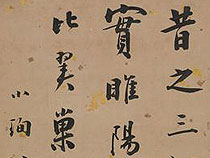 昔之三
實睢陽
比翼巢
小珣